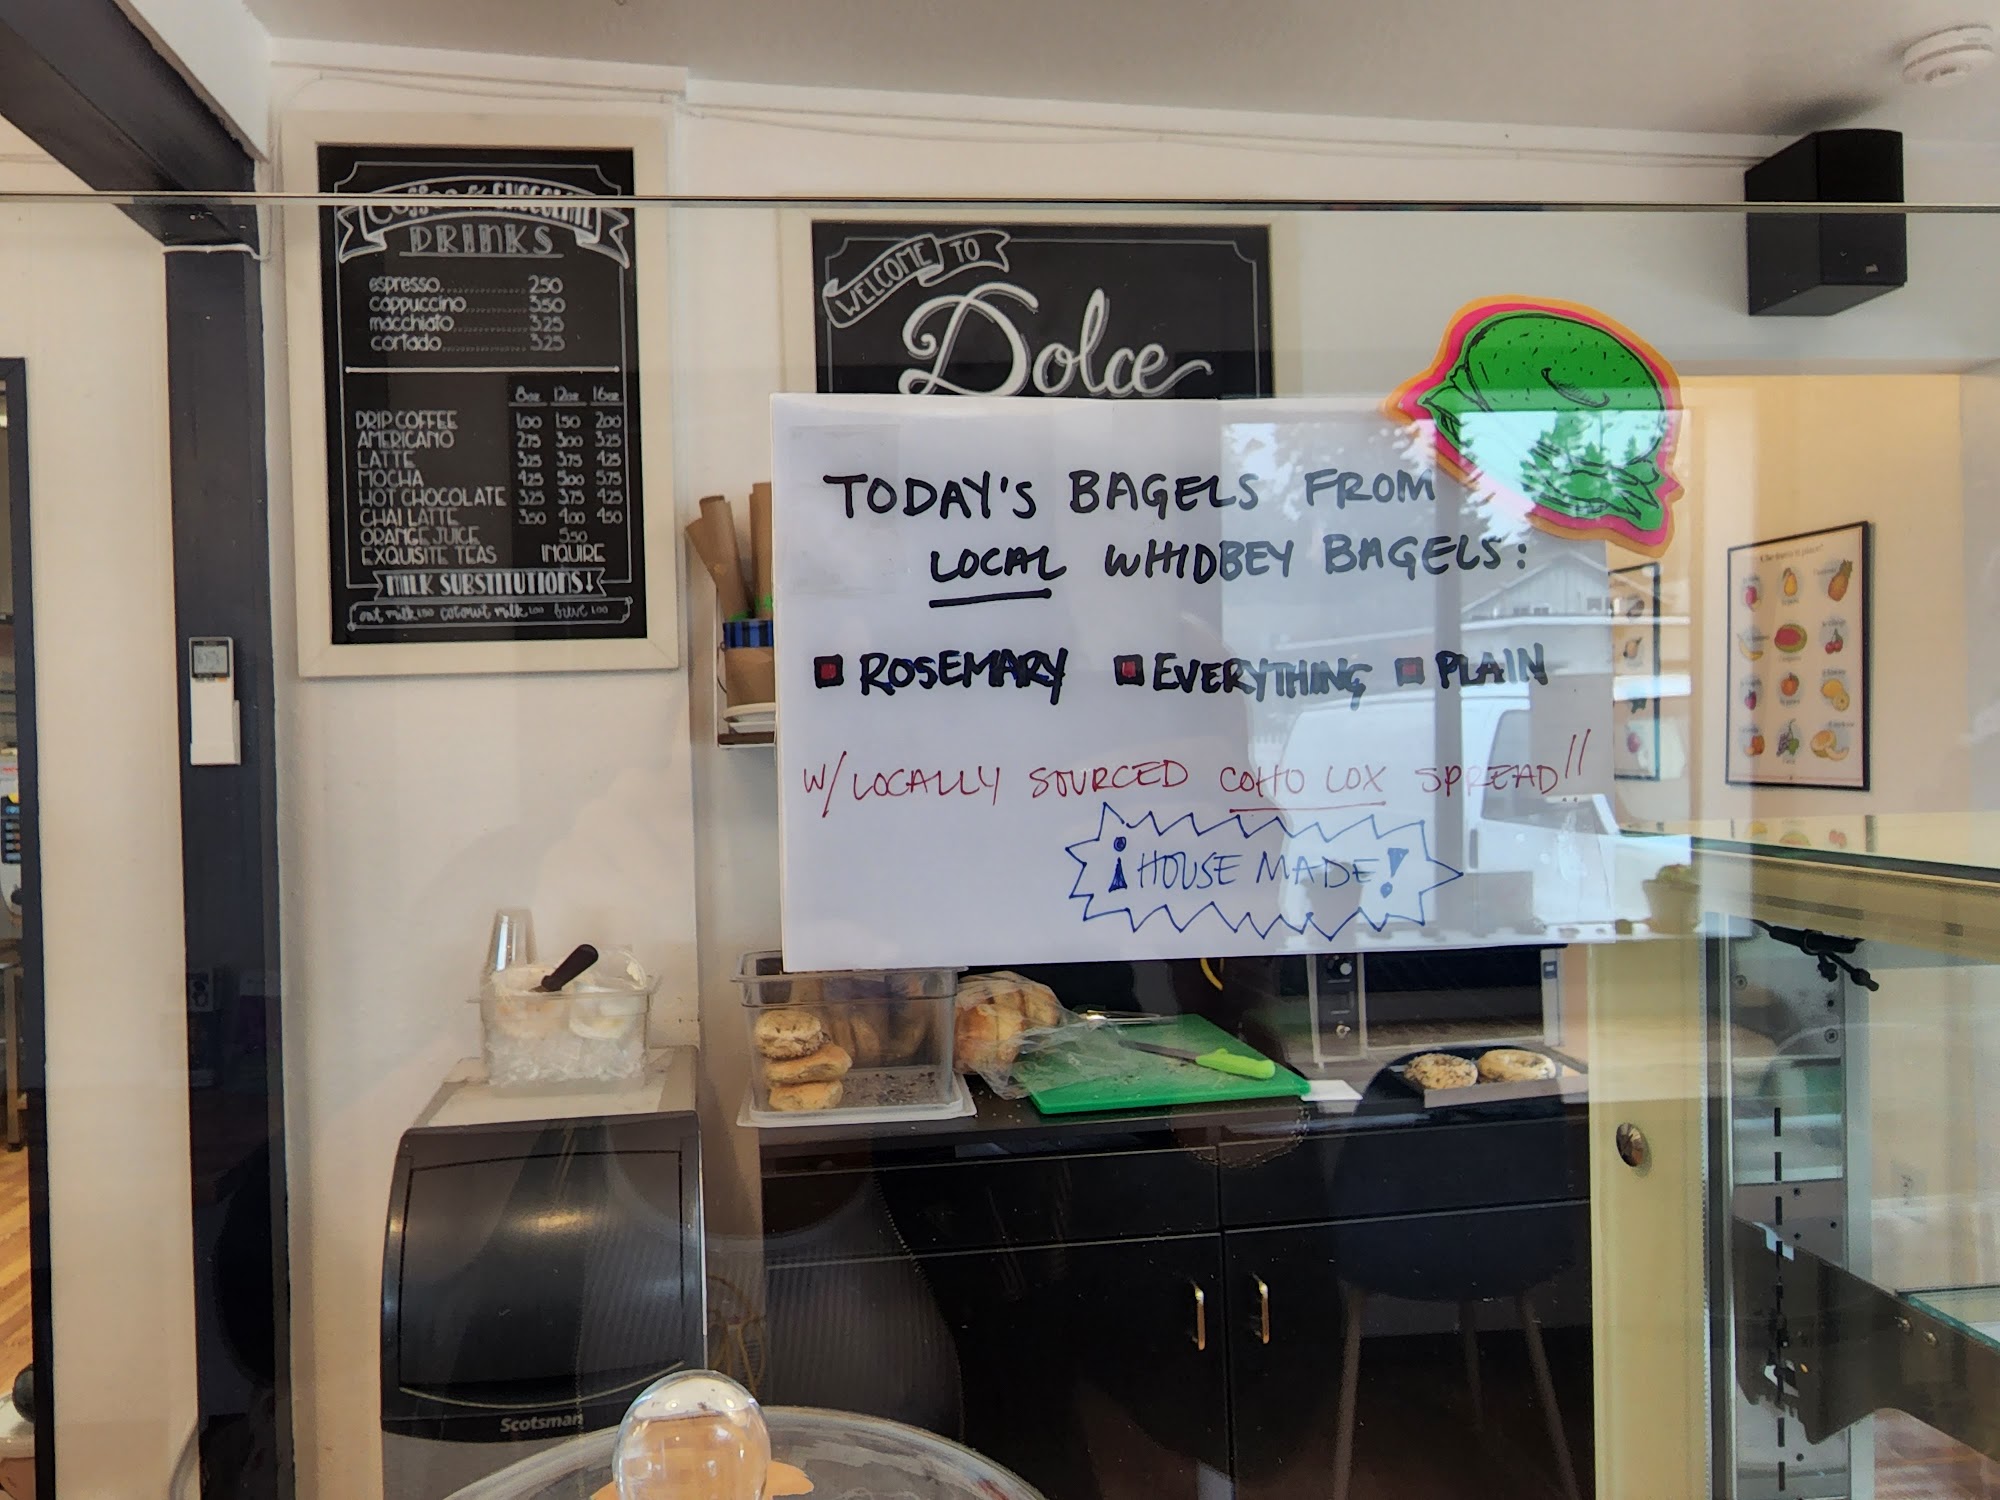 COFFEE & CHOCOLATE
DRINKS
espresso 250
cappuccino 350
macchiato 325
cortado 325
8oz 12oz 16oz
DRIP COFFEE 1.00 1.50 200
AMERICANO 275 300 325
LATTE 325 375 425
MOCHA 425 500 575
HOT CHOCOLATE 325 375 425
CHAI LATTE 350 400 450
ORANGE JUICE 550
EXQUISITE TEAS INQUIRE
MILK SUBSTITUTIONS
oat milk 1.00 coconut milk 1.00 breve 1.00
WELCOME TO
Dolce
TODAY'S BAGELS FROM
LOCAL WHIDBEY BAGELS:
ROSEMARY EVERYTHING PLAIN
W/ LOCALLY SOURCED COHO LOX SPREAD!!
¡HOUSE MADE!
Scotsman